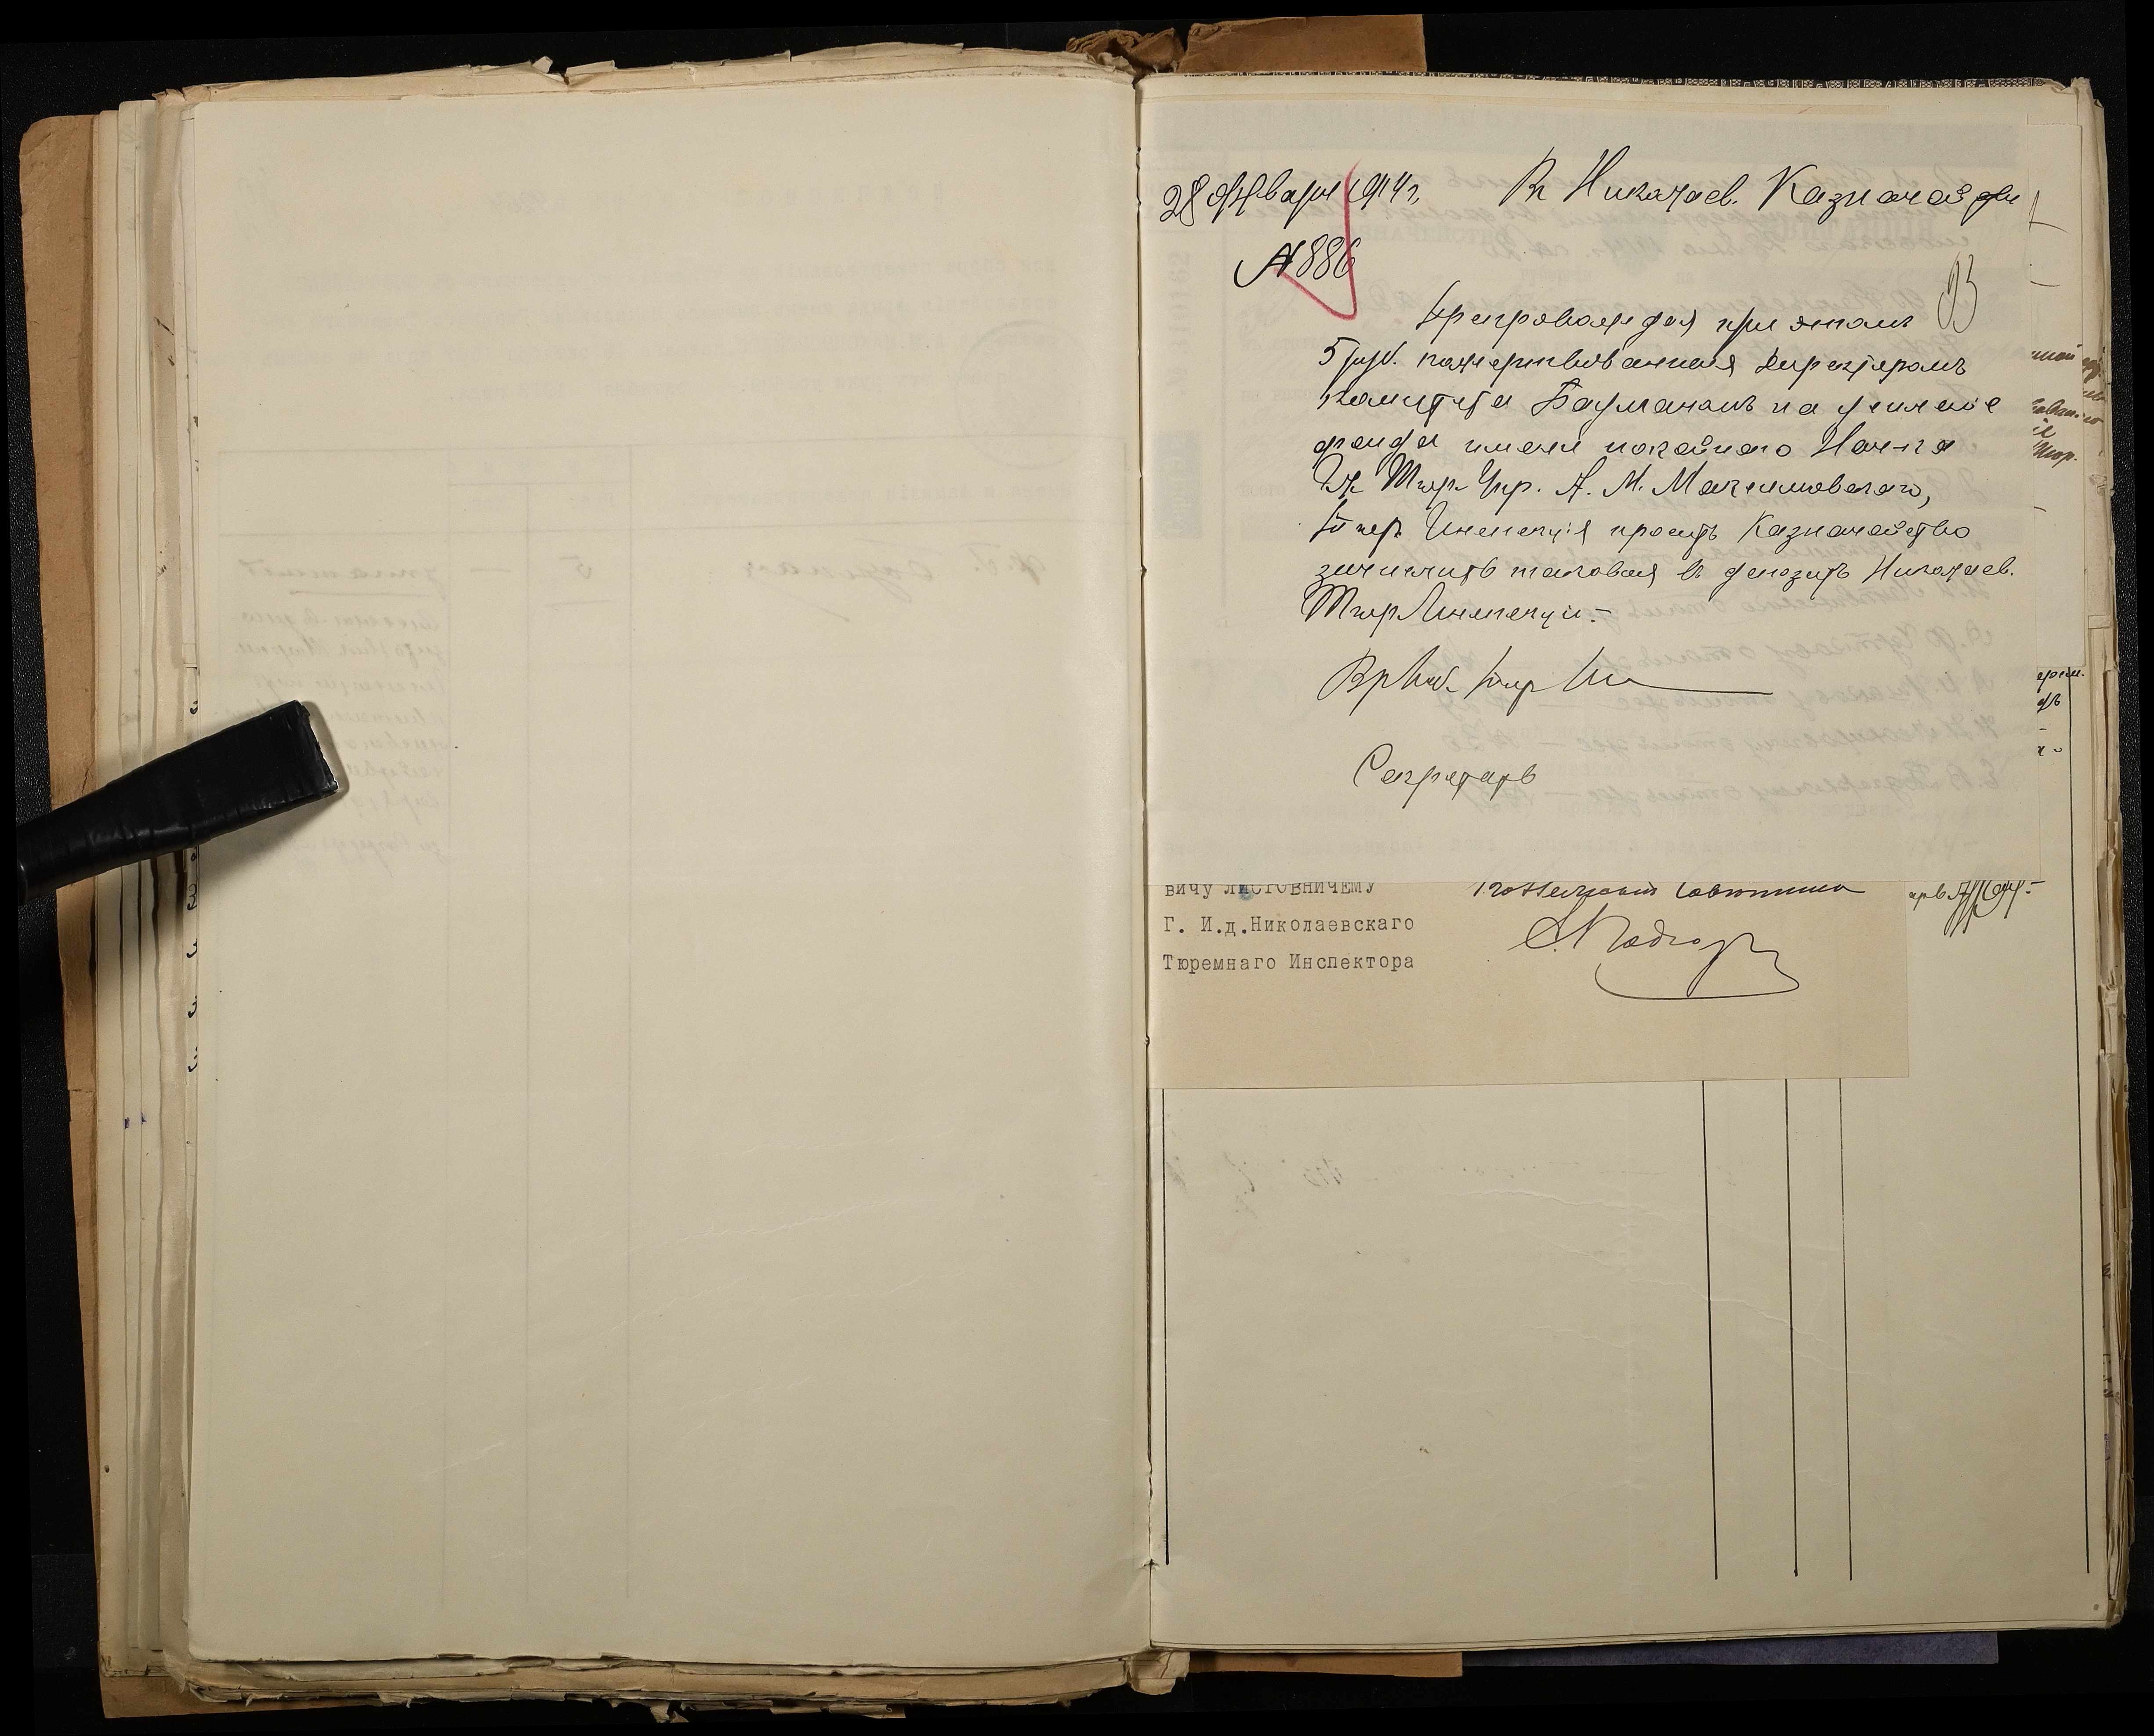 28 Января 1914 г. Въ Николаев. Казначейство
№ 886
93
Препровождая при этомъ
5 руб. пожертвованныя Директоромъ
Комитета Бауманомъ на усиленіе
фонда имени покойнаго Нач-ка
Гл. Тюр. Упр. А. М. Максимовскаго,
Тюр. Инспекція проситъ Казначейство
зачислить таковыя въ депозитъ Николаев.
Тюр. Инспекціи.-
Вр. И. об. Тюр. Ин
Секретарь
вичу ЛИСТОВНИЧЕМУ
Г. И.д.Николаевскаго
Тюремнаго Инспектора